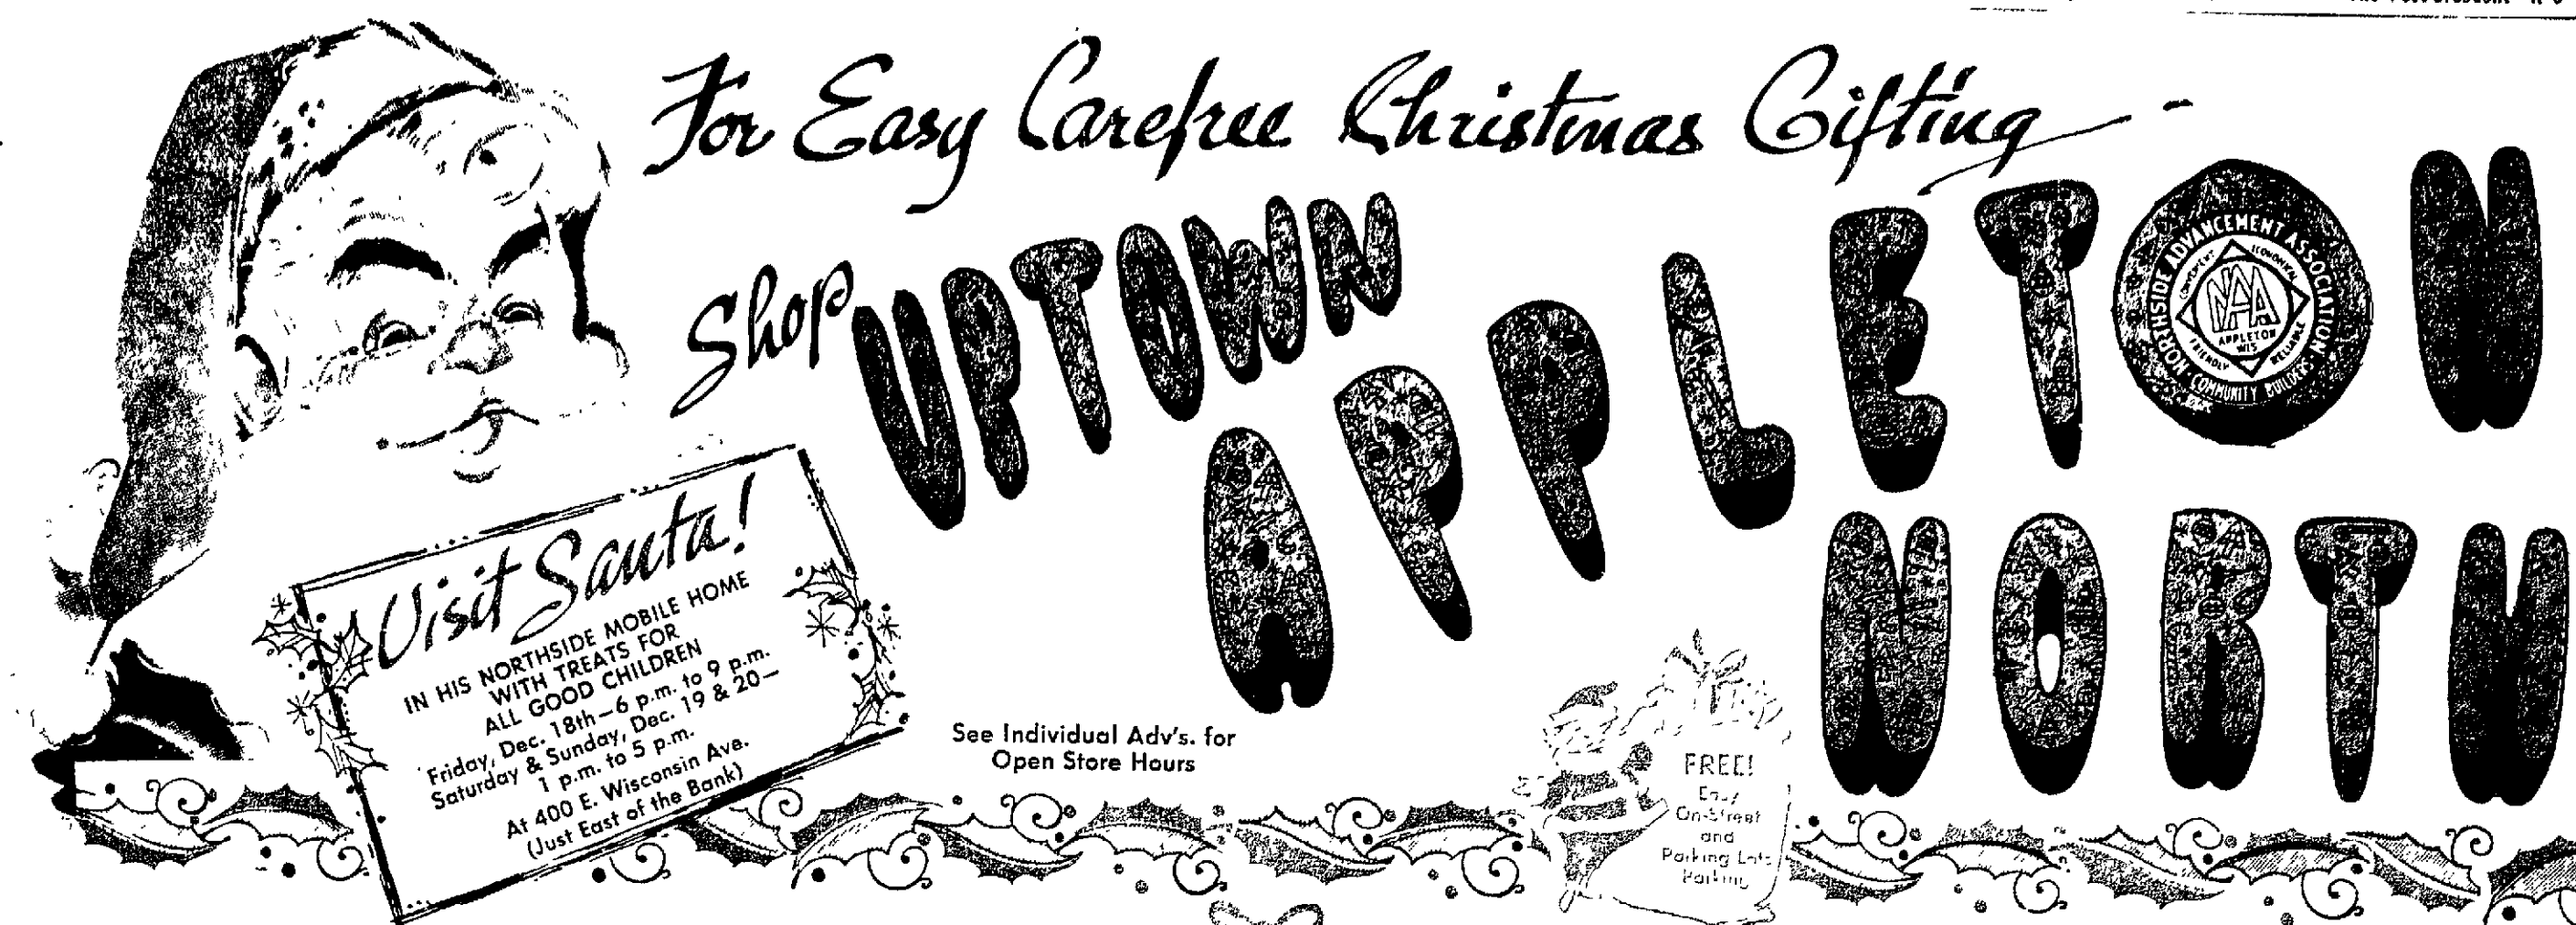 For Easy Carefree Christmas Gifting -
Shop UPTOWN
APPLETON
NORTH
NORTHSIDE ADVANCEMENT ASSOCIATION
COMMUNITY BUILDERS
CONVENIENT
ECONOMICAL
NAA
APPLETON
WIS
FRIENDLY
RELIABLE
Visit Santa!
IN HIS NORTHSIDE MOBILE HOME
WITH TREATS FOR
ALL GOOD CHILDREN
Friday, Dec. 18th—6 p.m. to 9 p.m.
Saturday & Sunday, Dec. 19 & 20—
1 p.m. to 5 p.m.
At 400 E. Wisconsin Ave.
(Just East of the Bank)
See Individual Adv's. for
Open Store Hours
FREE!
Easy
On-Street
and
Parking Lots
Parking